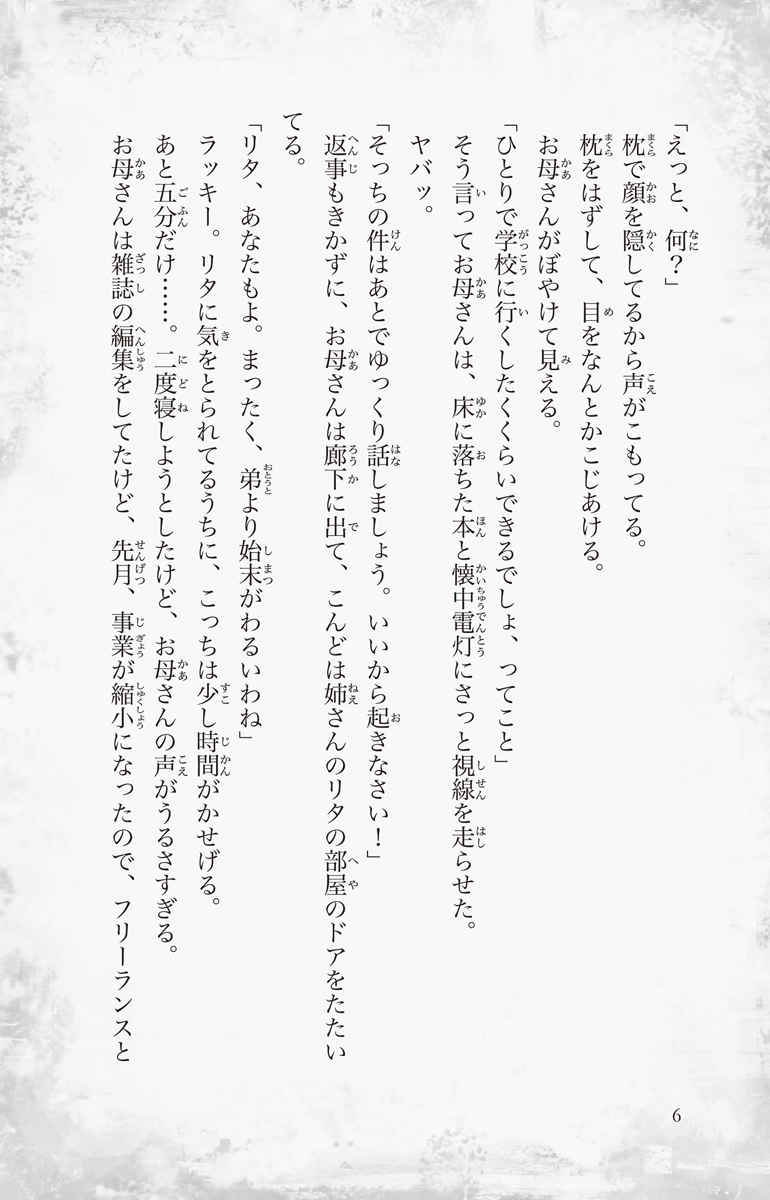 「えっと、何？」
枕で顔を隠してるから声がこもってる。
枕をはずして、目をなんとかこじあける。
お母さんがぼやけて見える。
「ひとりで学校に行くしたくくらいできるでしょ、ってこと」
そう言ってお母さんは、床に落ちた本と懐中電灯にさっと視線を走らせた。
ヤバッ。
「そっちの件はあとでゆっくり話しましょう。いいから起きなさい！」
返事もきかずに、お母さんは廊下に出て、こんどは姉さんのリタの部屋のドアをたたい
てる。
「リタ、あなたもよ。まったく、弟より始末がわるいわね」
ラッキー。リタに気をとられてるうちに、こっちは少し時間がかせげる。
あと五分だけ……。二度寝しようとしたけど、お母さんの声がうるさすぎる。
お母さんは雑誌の編集をしてたけど、先月、事業が縮小になったので、フリーランスと
6